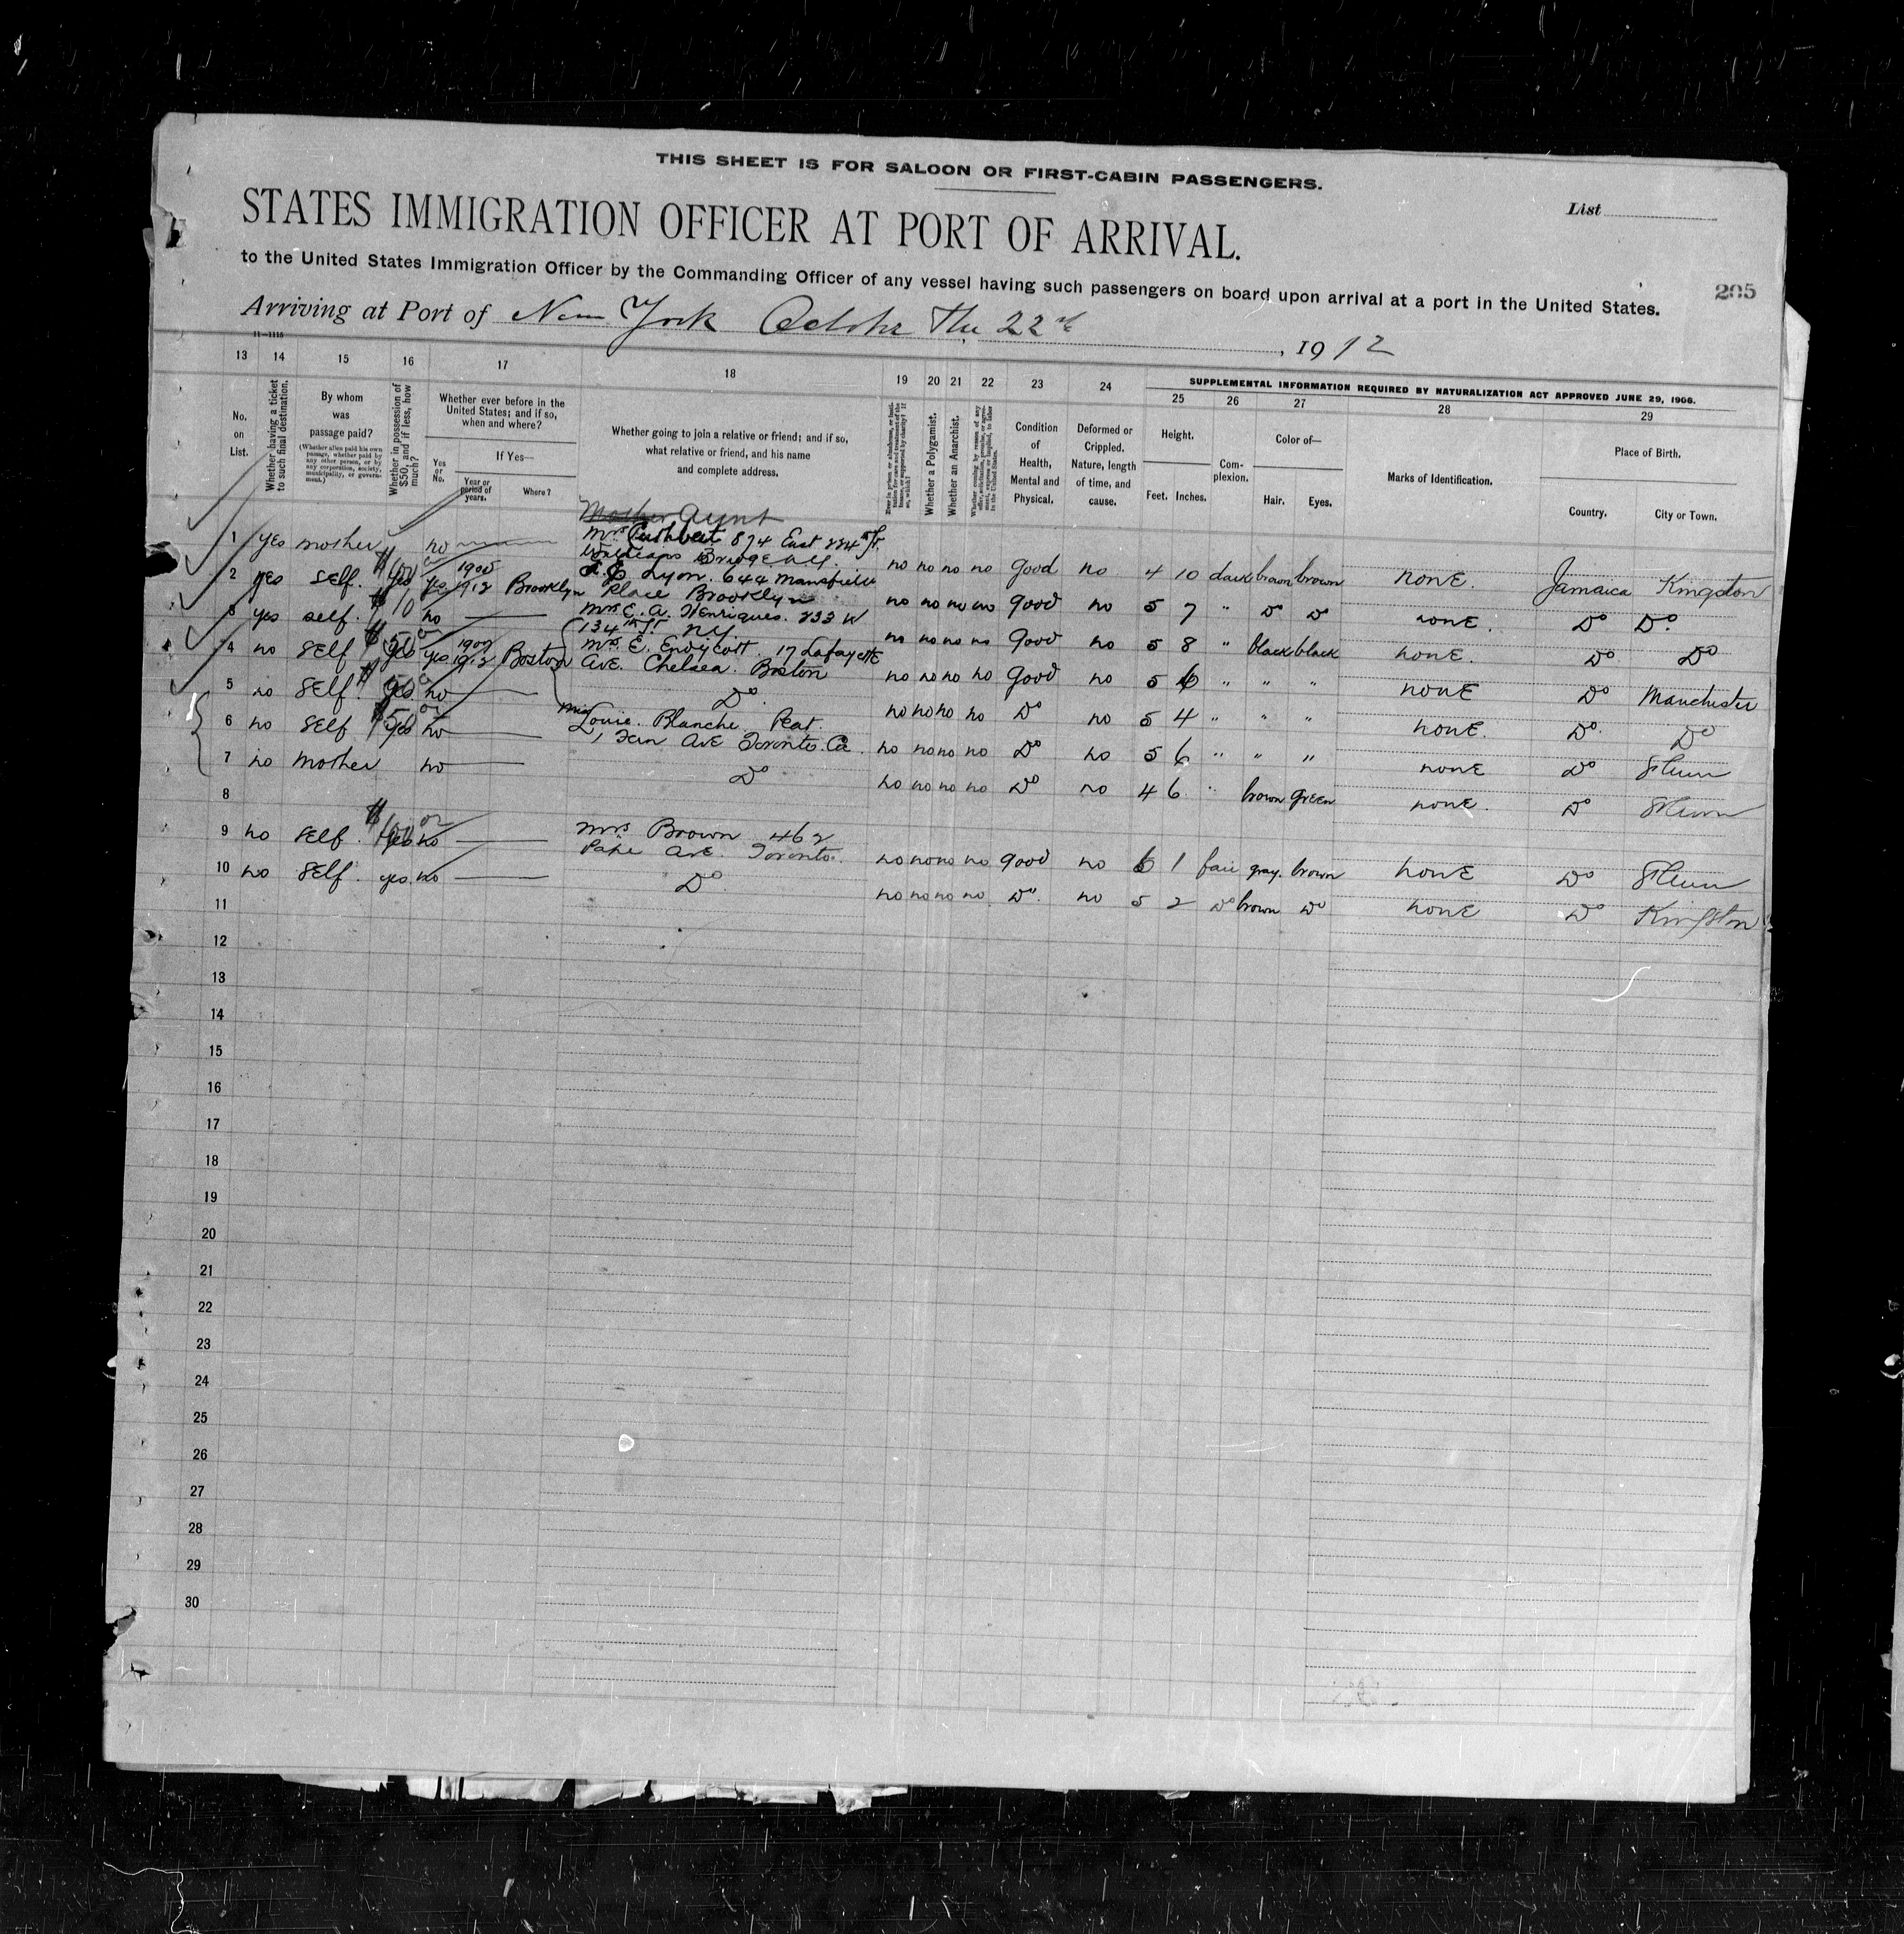 THIS SHEET IS FOR SALOON OR FIRST-CABIN PASSENGERS.
List
STATES IMMIGRATION OFFICER AT PORT OF ARRIVAL.
to the United States Immigration Officer by the Commanding Officer of any vessel having such passengers on board upon arrival at a port in the United States.
205
Arriving at Port of New York October The 22nd, 1912
11—1115
13 14 15 16 17 18 19 20 21 22 23 24
SUPPLEMENTAL INFORMATION REQUIRED BY NATURALIZATION ACT APPROVED JUNE 29, 1906.
25 26 27 28 29
No. on List.
Whether having a ticket to such final destination.
By whom was passage paid?
(Whether alien paid his own passage, whether paid by any other person, or by any corporation, society, municipality, or government.)
Whether in possession of $50, and if less, how much?
Whether ever before in the United States; and if so, when and where?
Yes or No.
If Yes—
Year or period of years.
Where?
Whether going to join a relative or friend; and if so, what relative or friend, and his name and complete address.
Ever in prison or almshouse, or institution for care and treatment of the insane, or supported by charity? If so, which?
Whether a Polygamist.
Whether an Anarchist.
Whether coming by reason of any offer, solicitation, promise, or agreement, express or implied, to labor in the United States.
Condition of Health, Mental and Physical.
Deformed or Crippled. Nature, length of time, and cause.
Height.
Feet. Inches.
Complexion.
Color of—
Hair. Eyes.
Marks of Identification.
Place of Birth.
Country. City or Town.
Mother Aunt
1 yes mother no Mrs Cuthbert 874 East 224th St.
Bridge N.Y. no no no no good no 4 10 dark brown brown none. Jamaica Kingston
2 yes self. yes yes 1912 Brooklyn Lyon. 644 Mansfield
Place Brooklyn no no no no good no 5 7 " Do Do none. Do Do
3 yes self. $10 no Mrs E. A. Henriques. 233 W
134th St. NY. no no no no good no 5 8 " black black none. Do Do
4 no self $50 yes 1912 Boston Mrs E. Endycott. 17 Lafayette
Ave. Chelsea. Boston no no no no good no 5 6 " " " none Do Manchester
5 no self. yes no Do
no no no no Do no 5 4 " " " none. Do. Do
6 no self $50 no Miss Louie. Blanche. Peat
1 Fern Ave Toronto. Ca. no no no no Do no 5 6 " " " none Do
7 no mother no Do
no no no no Do no 4 6. " brown green none. Do
8
9 no self. $ yes no Mrs Brown 462
Pape Ave. Toronto. no no no no good no 6 1 fair gray. brown none Do
10 no self. yes. no Do
no no no no Do. no 5 2 Do brown Do none Do Kingston
11
12
13
14
15
16
17
18
19
20
21
22
23
24
25
26
27
28
29
30